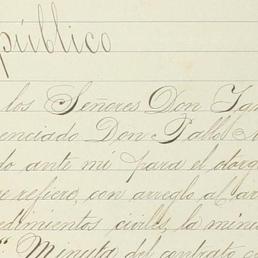 público
los Señores Don
enciado Don Pablo
do ante mi para el otorg
e refiere, con arreglo al ar
edimientos civiles, la minu
Minuta del contrato